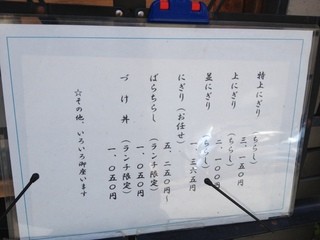 特上にぎり
(ちらし) 三、一五〇円
上にぎり
(ちらし) 二、一〇〇円
並にぎり
(ちらし) 一、三六五円
にぎり(お任せ)
五、二五〇円〜
ばらちらし
(ランチ限定) 一、〇五〇円
づけ丼
(ランチ限定) 一、〇五〇円
☆その他、いろいろ御座います